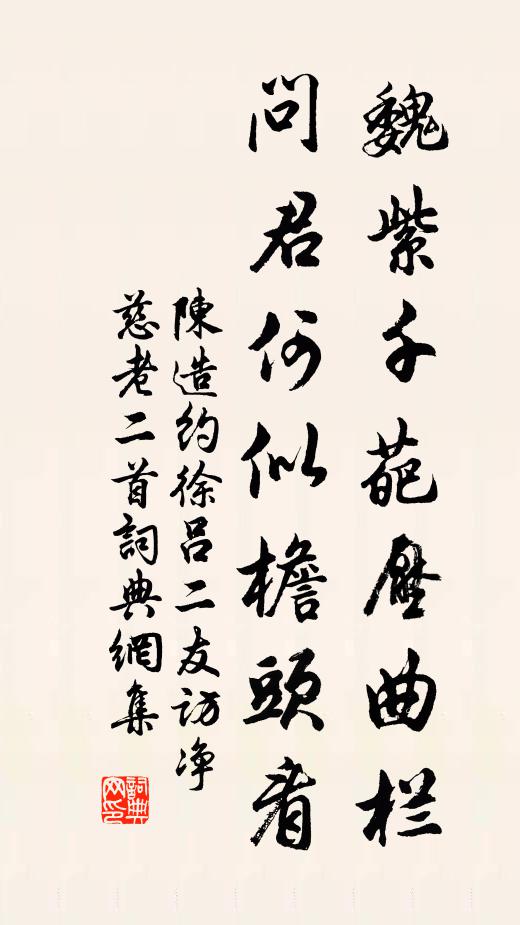 魏紫千葩壓曲栏
問君何似檐頭看
陳造約徐吕二友訪净
慈老二首詞典網集
詞典网印